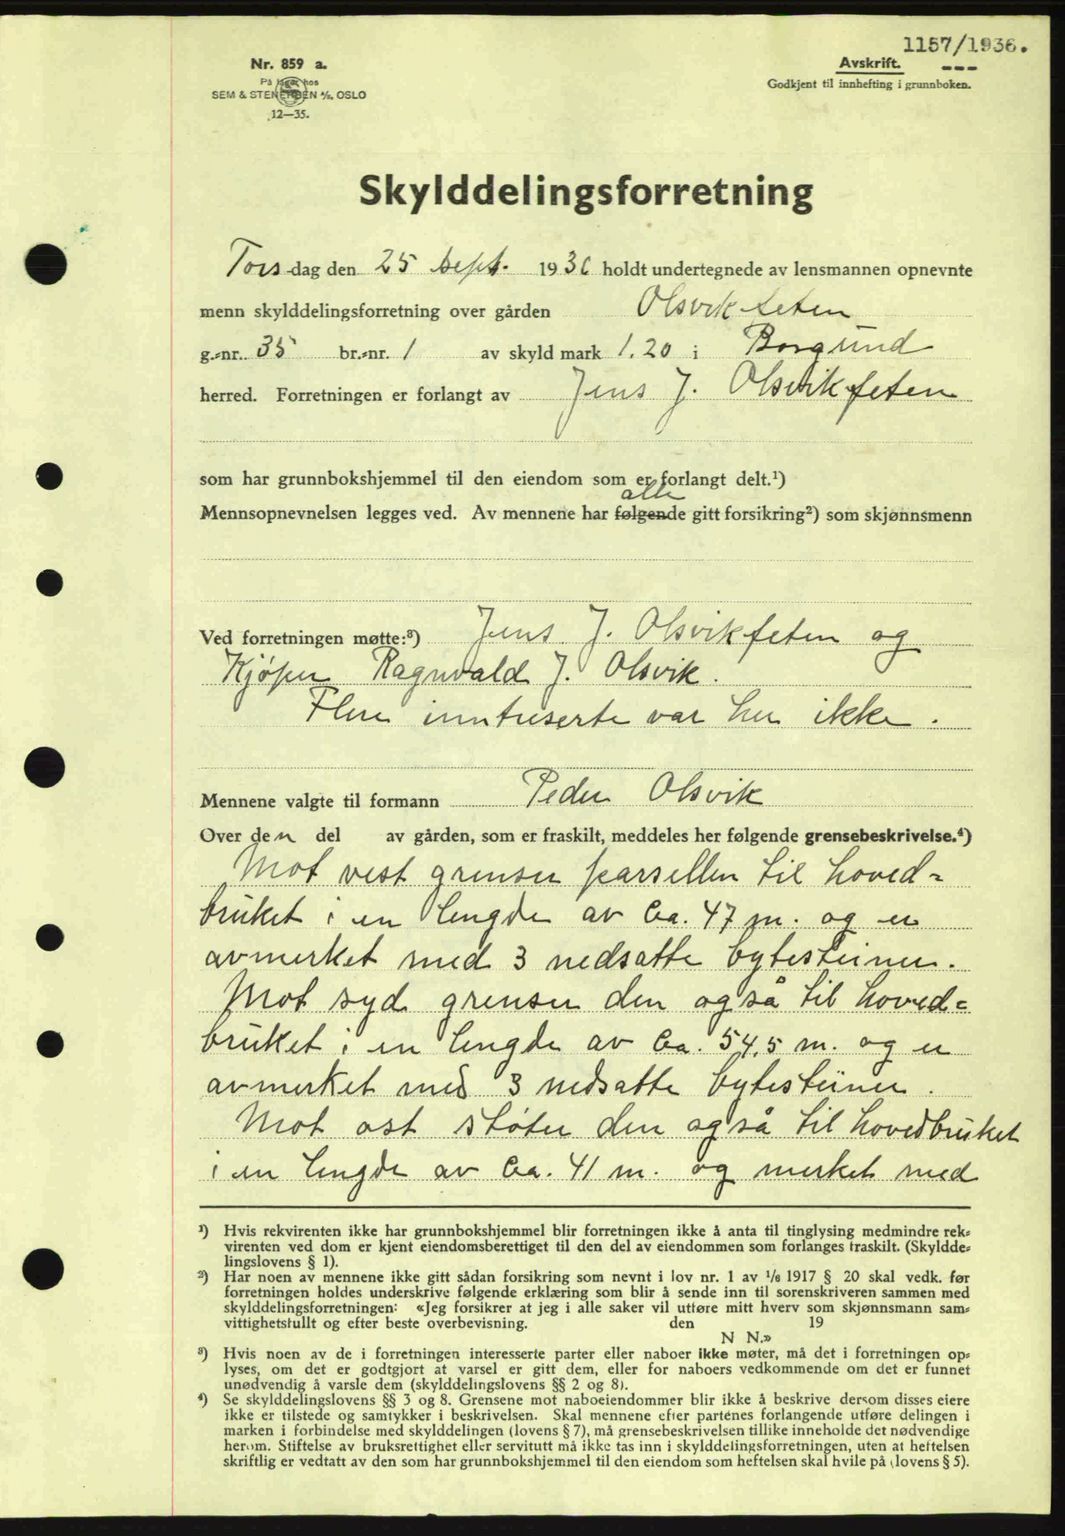 1157/1936.
Nr. 859 a.
På lager hos
SEM & STENERSEN A/S. OSLO
12—35.
Avskrift.
Godkjent til innhefting i grunnboken.
Skylddelingsforretning
Tors-dag den 25 sept. 1936 holdt undertegnede av lensmannen opnevnte
menn skylddelingsforretning over gården Olsvikfeten
g.-nr. 35 br.-nr. 1 av skyld mark 1.20 i Borgund
herred. Forretningen er forlangt av Jens J. Olsvikfeten
som har grunnbokshjemmel til den eiendom som er forlangt delt.¹)
alle
Mennsopnevnelsen legges ved. Av mennene har følgende gitt forsikring²) som skjønnsmenn
Ved forretningen møtte:³) Jens J. Olsvikfeten og
Kjøper Ragnvald J. Olsvik.
Flere inntreserte var her ikke.
Mennene valgte til formann Peder Olsvik
Over den del av gården, som er fraskilt, meddeles her følgende grensebeskrivelse.⁴)
Mot vest grenser parsellen til hoved=
bruket i en lengde av ca. 47 m. og er
avmerket med 3 nedsatte bytesteiner.
Mot syd grenser den også til hoved=
bruket i en lengde av ca. 54,5 m. og er
avmerket med 3 nedsatte bytesteiner.
Mot ost støter den også til hovedbruket
i en lengde av ca. 41 m. og merket med
¹) Hvis rekvirenten ikke har grunnbokshjemmel blir forretningen ikke å anta til tinglysing medmindre rek-
virenten ved dom er kjent eiendomsberettiget til den del av eiendommen som forlanges fraskilt. (Skyldde-
lingslovens § 1).
²) Har noen av mennene ikke gitt sådan forsikring som nevnt i lov nr. 1 av 1/6 1917 § 20 skal vedk. før
forretningen holdes underskrive følgende erklæring som blir å sende inn til sorenskriveren sammen med
skylddelingsforretningen: «Jeg forsikrer at jeg i alle saker vil utføre mitt hverv som skjønnsmann sam-
vittighetsfullt og efter beste overbevisning. den 19
N N.»
³) Hvis noen av de i forretningen interesserte parter eller naboer ikke møter, må det i forretningen op-
lyses, om det er godtgjort at varsel er gitt dem, eller for naboers vedkommende om det er funnet
unødvendig å varsle dem (skylddelingslovens §§ 2 og 8).
⁴) Se skylddelingslovens §§ 3 og 8. Grensene mot naboeiendommer blir ikke å beskrive dersom disses eiere
ikke er tilstede og samtykker i beskrivelsen. Skal mennene efter partenes forlangende utføre delingen i
marken i forbindelse med skylddelingen (lovens § 7), må grensebeskrivelsen tillike inneholde det nødvendige
herom. Stiftelse av bruksrettighet eller servitutt må ikke tas inn i skylddelingsforretningen, uten at heftelsen
skriftlig er vedtatt av den som har grunnbokshjemmel til den eiendom som heftelsen skal hvile på (lovens § 5).